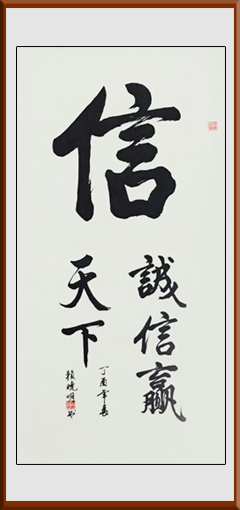 信
誠信贏
天下
丁酉年春